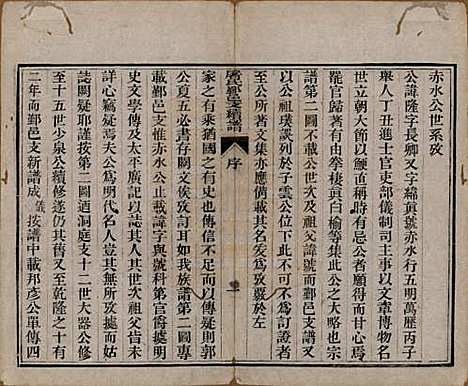 赤水公世系攷
公諱隆字長卿又字緯真號赤水行五明萬歷丙子
舉人丁丑進士官吏部儀制司主事以文章博物名
世立朝大節以鯁直稱時有忌公者願得而甘心焉
罷官歸著有由拳棲真白榆等集此公之大略也宗
譜第二圖不載公世次及祖父諱號而鄞邑支譜又
以公祖璞談列於子雲公位下此不可不為訂證者
至公所著文集亦應備載其名爰為攷覈於左
鄞屠氏支譜 序 一
家之有乘猶國之有史也傳信不傳疑則郭
公夏五必書存闕文俟攷訂耳如我族譜第二圖專
載鄞邑支惟赤水公止載諱字與號科第官爵攟於
史文學傳及太平廣記其人其世次祖父從
詳心竊疑焉夫公為明代名人豈其無所攷據而姑
誌闕疑耶謹按第二圖迺洞庭支十二世大器公修
至十五世少泉公續修遂仍其舊又至乾隆之十有
二年而鄞邑支新譜成儀按譜中載邦彥公單傳四